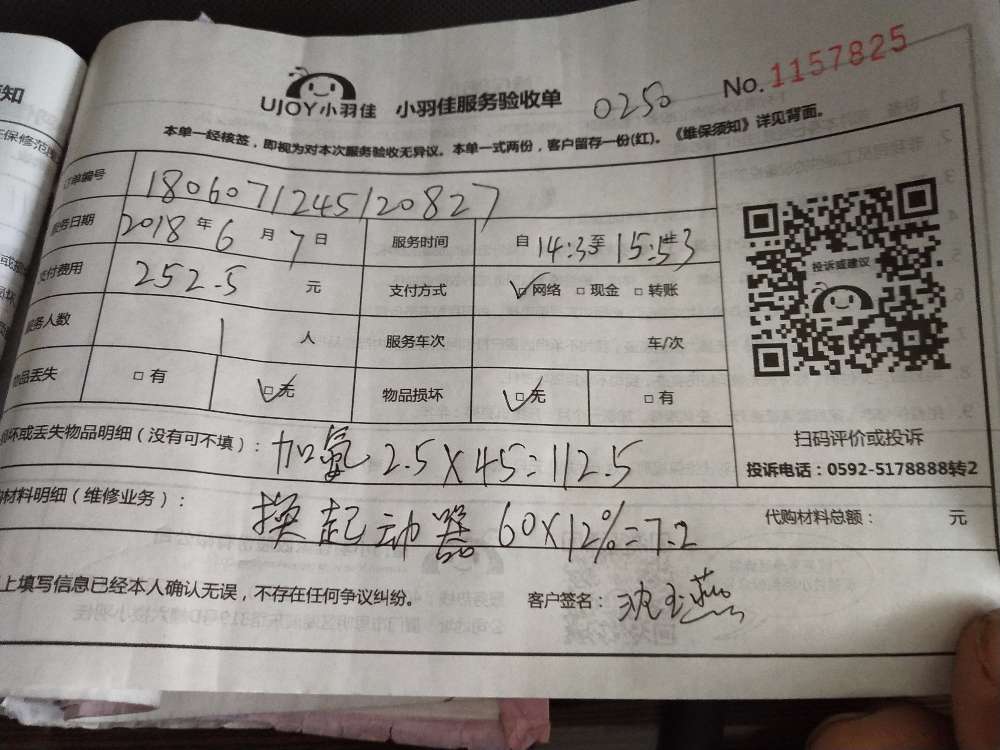 知
UJOY小羽佳 小羽佳服务验收单 0250 No.1157825
本单一经核签，即视为对本次服务验收无异议。本单一式两份，客户留存一份(红)。《维保须知》详见背面。
订单编号 1806071245120827
服务日期 2018年6月7日 服务时间 自14:3至15:33
支付费用 252.5元 支付方式 ☑网络 □现金 □转账
投诉或建议
服务人数 1人 服务车次 车/次
物品丢失 □有 ☑无 物品损坏 ☑无 □有
损坏或丢失物品明细（没有可不填）： 加氟 2.5×45=112.5
扫码评价或投诉
投诉电话：0592-5178888转2
材料明细（维修业务）： 换起动器 60×12%=7.2 代购材料总额： 元
上填写信息已经本人确认无误，不存在任何争议纠纷。 客户签名：沈玉燕